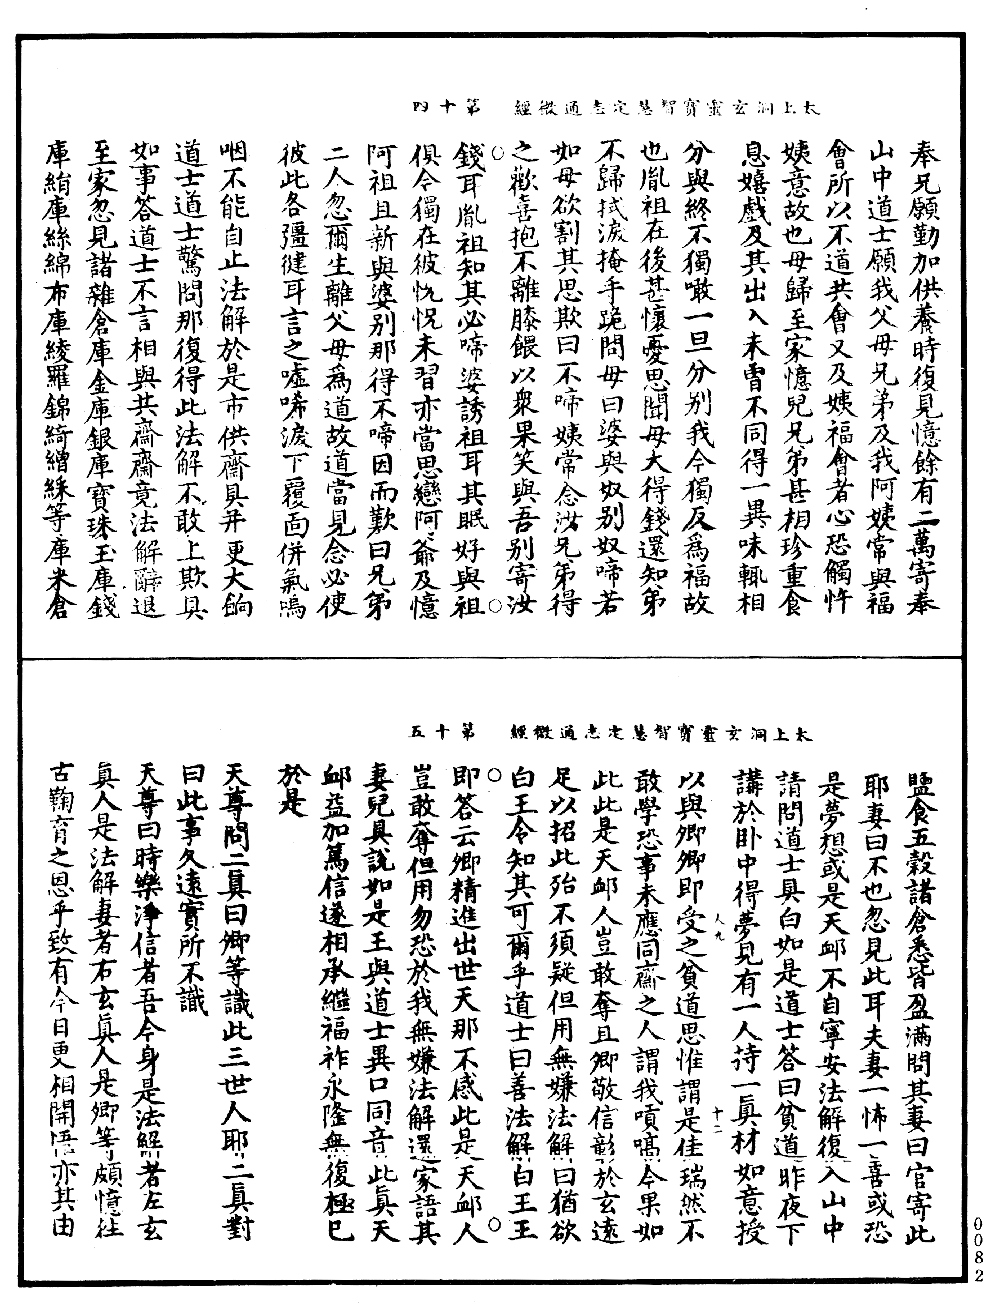 太上洞玄靈寶智慧定志通微經　第十四
奉兄願勤加供養時復見憶餘有二萬寄奉
山中道士願我父母兄弟及我阿姨常與福
會所以不道共會又及姨福會者心恐觸忤
姨意故也母歸至家憶兒兄弟甚相珍重食
息嬉戲及其出入未曾不同得一異味輒相
分與終不獨噉一旦分別我今獨反為福故
也胤祖在後甚懷憂思聞母大得錢還知弟
不歸拭淚掩手跪問母曰婆與奴別奴啼若
如母欲割其思欺曰不啼姨常念汝兄弟得
之歡喜抱不離膝餵以眾果笑與吾別寄汝
錢耳胤祖知其必啼婆誘祖耳其眠好與祖
俱今獨在彼怳怳未習亦當思戀阿爺及憶
阿祖且新與婆別那得不啼因而歎曰兄弟
二人忽爾生離父母為道故道當見念必使
彼此各彊健耳言之噓唏淚下覆面併氣嗚
咽不能自止法解於是市供齋具并更大餉
道士道士驚問那復得此法解不敢上欺具
如事答道士不言相與共齋齋竟法解辭退
至家忽見諸雜倉庫金庫銀庫寶珠玉庫錢
庫絹庫絲綿布庫綾羅錦綺繒綵等庫米倉
太上洞玄靈寶智慧定志通微經　第十五
鹽食五穀諸倉悉皆盈滿問其妻曰官寄此
耶妻曰不也忽見此耳夫妻一怖一喜或恐
是夢想或是天卹不自寧安法解復入山中
請問道士具白如是道士答曰貧道昨夜下
講於卧中得夢見有一人持一真材如意授
以與卿卿即受之貧道思惟謂是佳瑞然不
敢學恐事未應同齋之人謂我嘖嗃今果如
此此是天卹人豈敢奪且卿敬信彰於玄遠
足以招此殆不須疑但用無嫌法解曰猶欲
白王令知其可爾乎道士曰善法解白王王
即答云卿精進出世天那不感此是天卹人
豈敢奪但用勿恐於我無嫌法解還家語其
妻兒具說如是王與道士異口同音此真天
卹益加篤信遂相承繼福祚永隆無復極已
於是
天尊問二真曰卿等識此三世人耶二真對
曰此事久遠實所不識
天尊曰時樂淨信者吾今身是法解者左玄
真人是法解妻者右玄真人是卿等頗憶往
古鞠育之恩乎致有今日更相開悟亦其由
人九
十二
0082